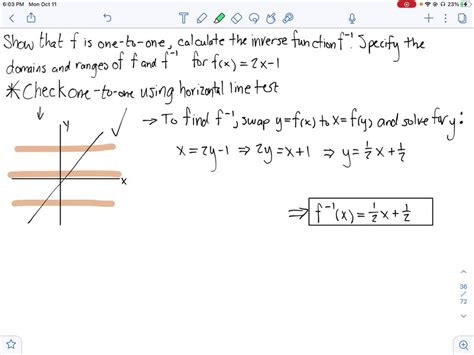 6:03 PM Mon Oct 11
23%
Show that f is one-to-one, calculate the inverse function f⁻¹. Specify the
domains and ranges of f and f⁻¹ for f(x) = 2x-1
*Check one-to-one using horizontal line test
y
x
→ To find f⁻¹, swap y=f(x) to x=f(y) and solve for y:
x=2y-1 ⇒ 2y=x+1 ⇒ y=½x+½
⇒ f⁻¹(x)=½x+½
36
/
72